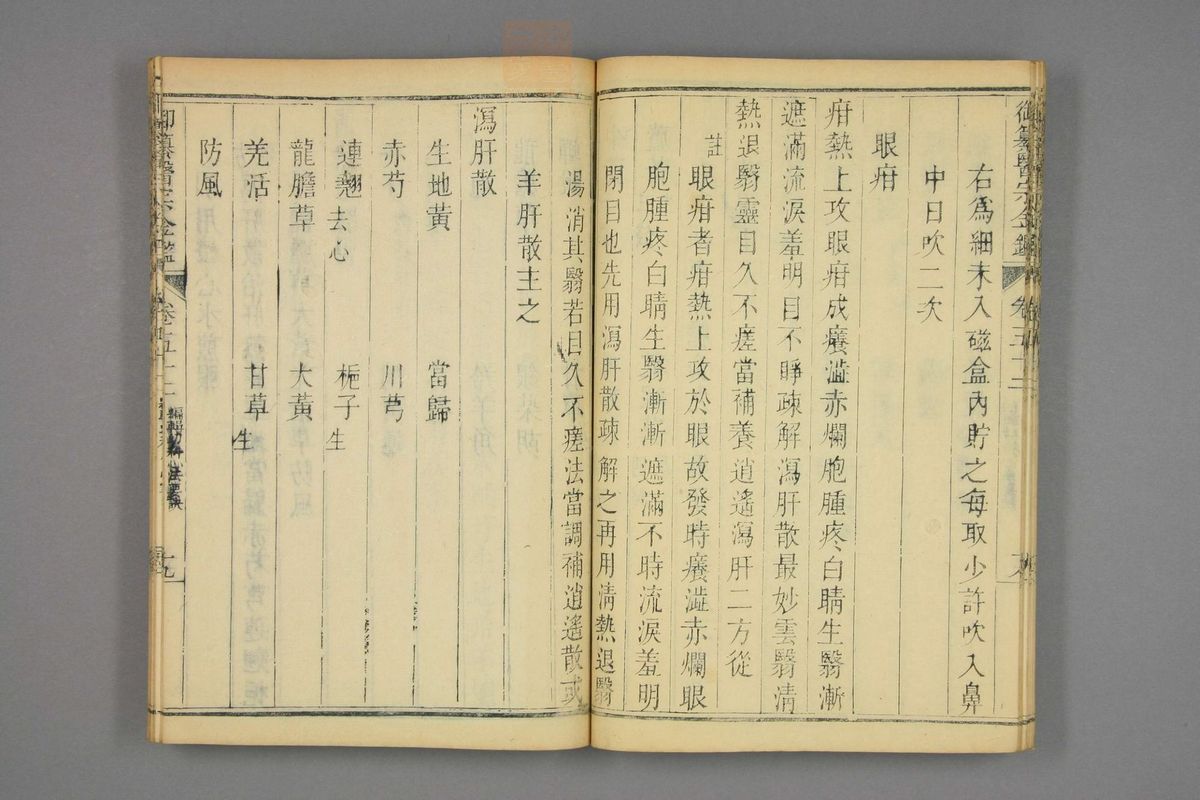 右爲細末入磁盒內貯之每取少許吹入鼻
中日吹二次
眼疳
疳熱上攻眼疳成癢澁赤爛胞腫疼白睛生翳漸
遮滿流淚羞明目不睜疎解瀉肝散最妙雲翳清
熱退翳靈目久不瘥當補養逍遙瀉肝二方從
註
眼疳者疳熱上攻於眼故發時癢澁赤爛眼
胞腫疼白睛生翳漸漸遮滿不時流淚羞明
閉目也先用瀉肝散疎解之再用清熱退翳
湯消其翳若目久不瘥法當調補逍遙散或
羊肝散主之
瀉肝散
生地黃 當歸
赤芍 川芎
連翹去心 梔子生
龍膽草 大黃
羌活 甘草生
防風
御纂醫宗金鑑 卷五十二 編輯幼科心法要訣 十九